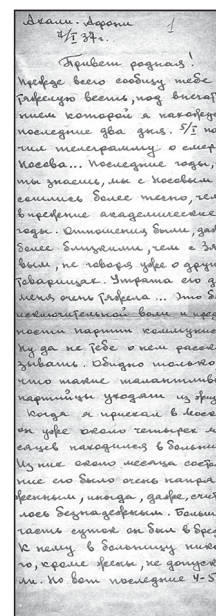 Ахали-Афони 1
7/I 37г.
Привет родная!
Прежде всего сообщу тебе
тяжелую весть, под впечат
нием которой я нахожусь
последние два дня. 5/I по
чил телеграмму о смер
Носова... Последние годы,
ты знаешь, мы с Носовым
сошлись более тесно, чем
в прежние академические
годы. Отношения были, даж
более близкими, чем с Зя
вым, не говоря уже о друг
товарищах. Утрата его д
меня очень тяжела... Это б
исключительной воли и пред
ности партии коммунис
Ну да не тебе о нем расск
зывать. Обидно только
что такие талантлив
партийцы уходят из жиз
Когда я приехал в Моск
он уже около четырех м
сяцев находился в больни
Из них около месяца состоя
ние его было очень напря
женным, иногда, даже, счит
лось безнадежным. Больш
часть суток он был в бред
К нему в больницу нико
го, кроме жены, не допуск
ли. Но вот последние 4-5